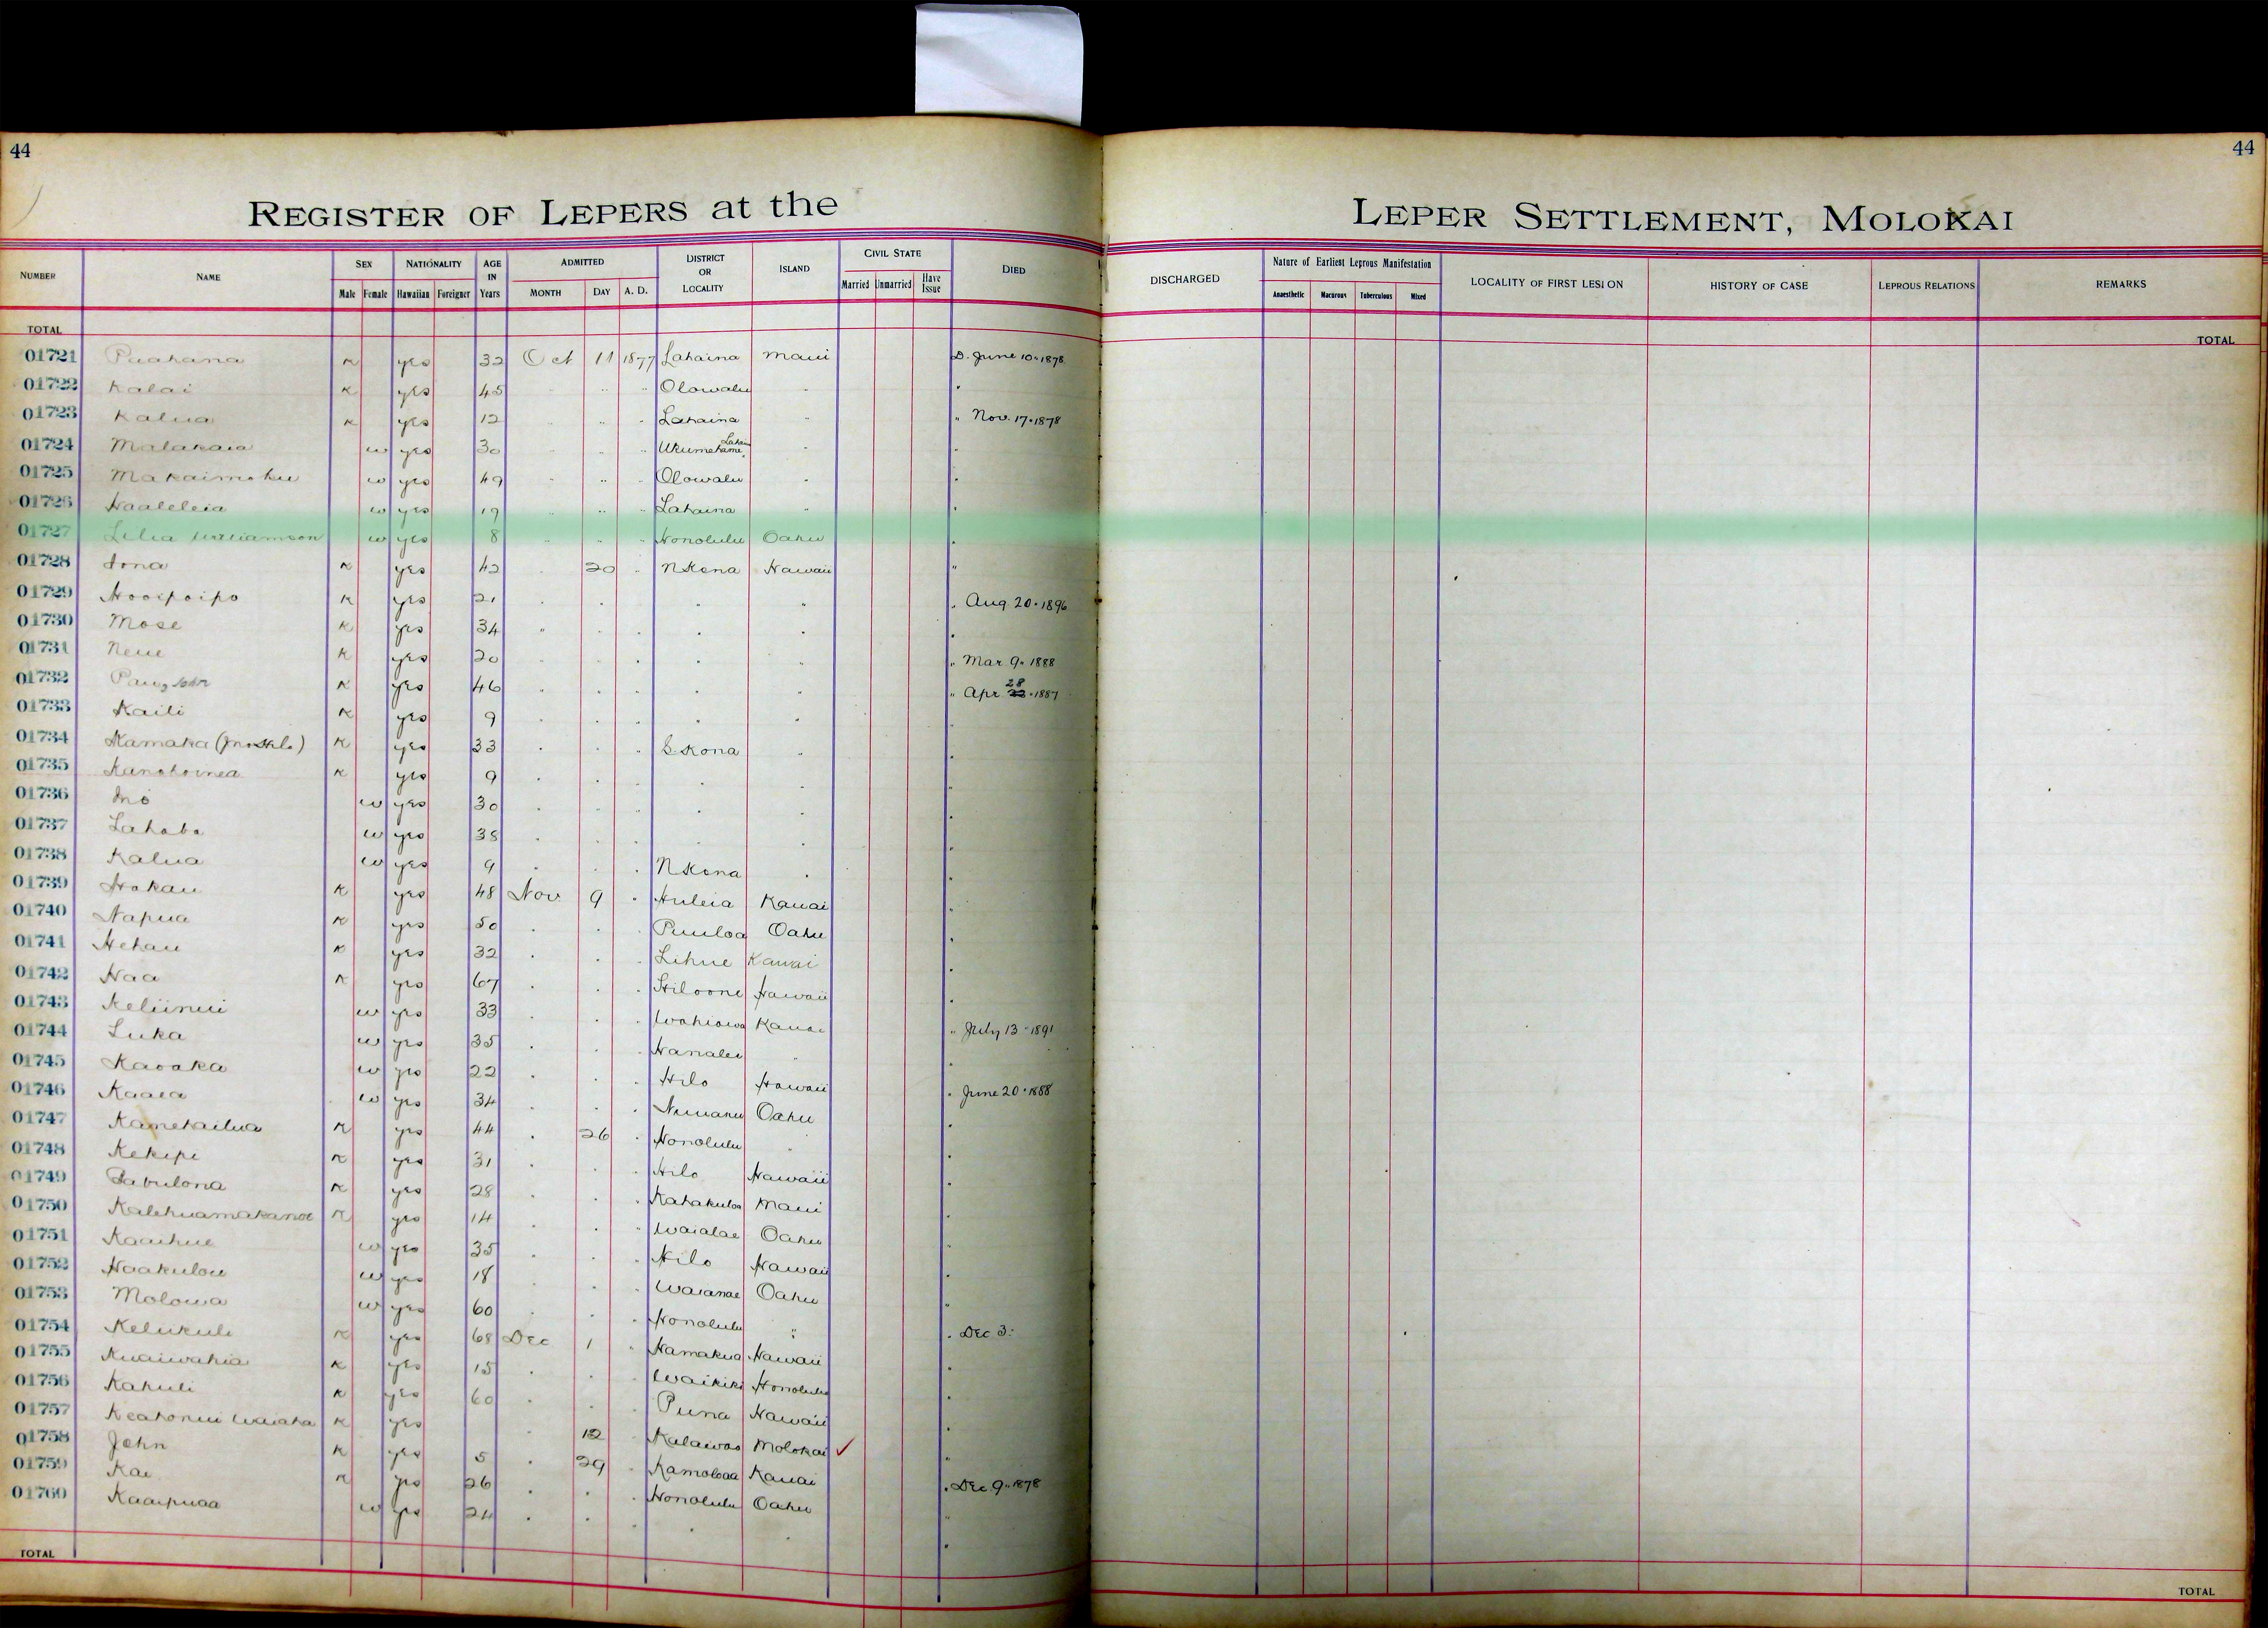 44
44
REGISTER OF LEPERS at the LEPER SETTLEMENT, MOLOKAI
NUMBER NAME SEX NATIONALITY AGE IN Years ADMITTED DISTRICT OR LOCALITY ISLAND CIVIL STATE DIED DISCHARGED Nature of Earliest Leprous Manifestation LOCALITY OF FIRST LESION HISTORY OF CASE LEPROUS RELATIONS REMARKS
Male Female Hawaiian Foreigner MONTH DAY A. D. Married Unmarried Have Issue Anaesthetic Macurous Tuberculous Mixed
TOTAL TOTAL
01721 Puahana K yes 32 Oct 11 1877 Lahaina Maui D. June 10 · 1878
01722 Kalai K yes 45 " " Olowalu "
01723 Kalua K yes 12 " " Lahaina " " Nov. 17 · 1878
01724 Malakaia w yes 30 " "
01725 Makaimoku w yes 49 " " Olowalu "
01726 Haaleleia w yes 19 " " Lahaina "
01727 Lilia Williamson w yes 8 " " Honolulu Oahu
01728 Iona K yes 42 20 " N Kona Hawaii "
01729 Hooipoipo K yes 21 " " " Aug. 20 · 1896
01730 Mose K yes 34 " "
01731 Neue K yes 20 " " " Mar. 9 · 1888
01732 John K yes 46 " " " Apr 28 · 1887
01733 Kaili K yes 9 "
01734 Kamaka K yes 33 " S. Kona "
01735 K yes 9
01736 w yes 30
01737 w yes 38
01738 Kalua w yes 9 N Kona
01739 Hokau K yes 48 Nov 9 " Huleia Kauai
01740 Napua K yes 50 Puuloa Oahu
01741 Hehau K yes 32 Lihue Kauai
01742 Naa K yes 67 Hiloone Hawaii
01743 Keliinui w yes 33 Wahiawa Kauai " July 13 · 1891
01744 Luka w yes 35 Hanalei "
01745 Kaoaka w yes 22 Hilo Hawaii " June 20 · 1888
01746 Kaaea w yes 34 Nuuanu Oahu
01747 Kamekailua K yes 44 26 Honolulu "
01748 Kekipi K yes 31 Hilo Hawaii
01749 Zabulona K yes 28 Kahakuloa Maui
01750 Kalehuamakanoe K yes 14 Waialae Oahu
01751 Kaaihue w yes 35 Hilo Hawaii
01752 Haakulou w yes 18 Waianae Oahu
01753 Molowa w yes 60 Honolulu "
01754 Kelikuli K yes 68 Dec 1 " Hamakua Hawaii " Dec 3.
01755 Kuaiwahia K yes 15 Waikiki Honolulu
01756 Kahuli K yes 60 Puna Hawaii
01757 K yes 12 Kalawao Molokai ✓
01758 John K yes 5 29 Kamoloaa Kauai
01759 Kai K yes 26 Honolulu Oahu " Dec 9 · 1878
01760 Kaaipuaa w yes 24 " "
TOTAL TOTAL